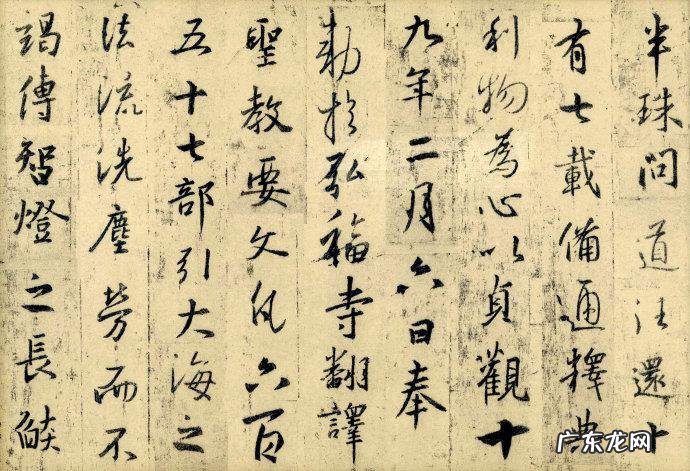 半珠問道往還十
有七載備通釋典
利物為心以貞觀十
九年二月六日奉
勅於弘福寺翻譯
聖教要文凡六百
五十七部引大海之
法流洗塵勞而不
竭傳智燈之長焰
广东龙网